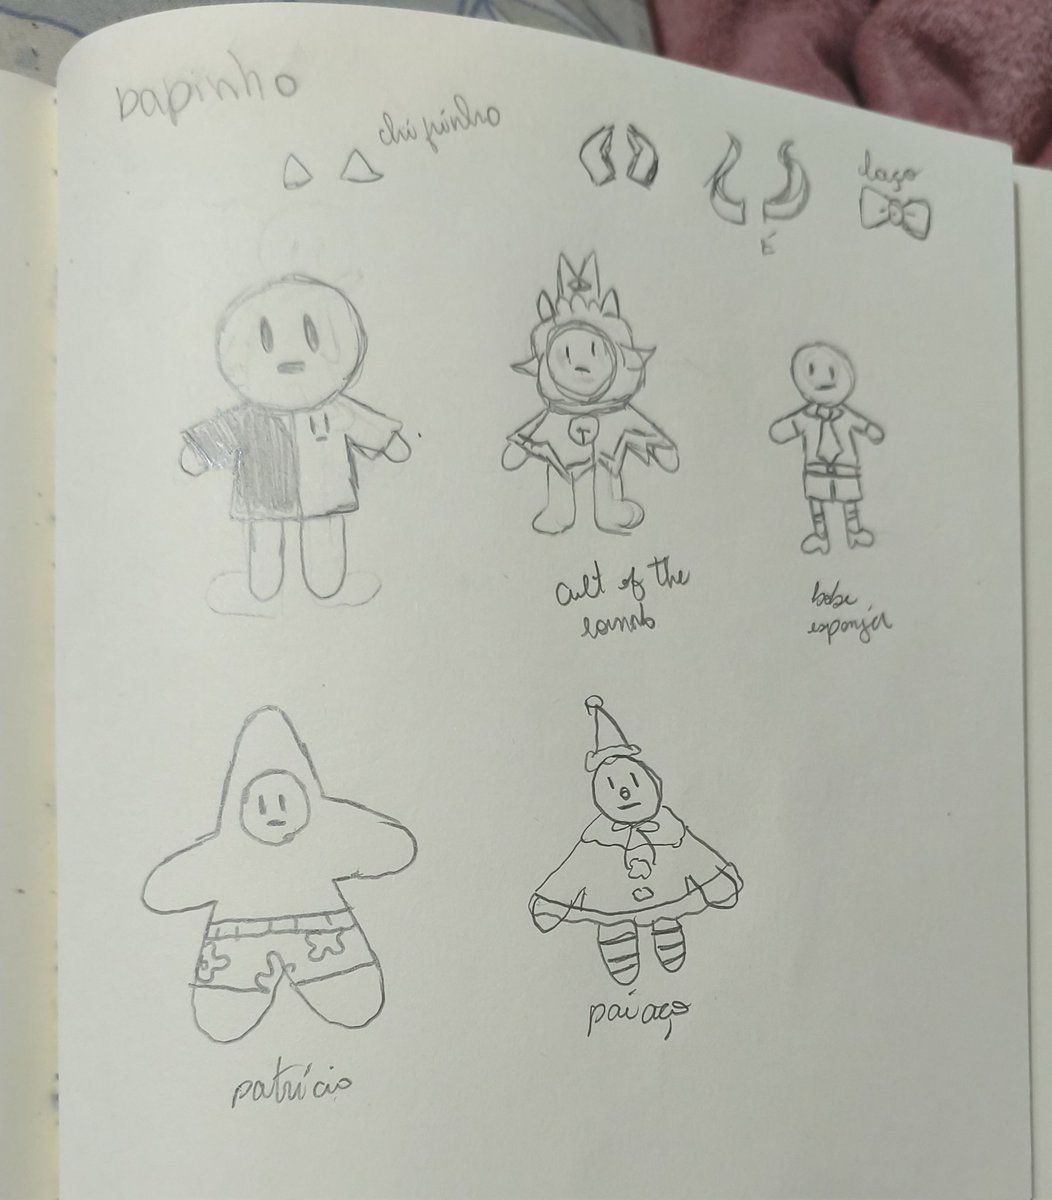 bapinho
chifrinho
laço
É
cult of the
lamb
bobe
esponja
patrício
paiaço